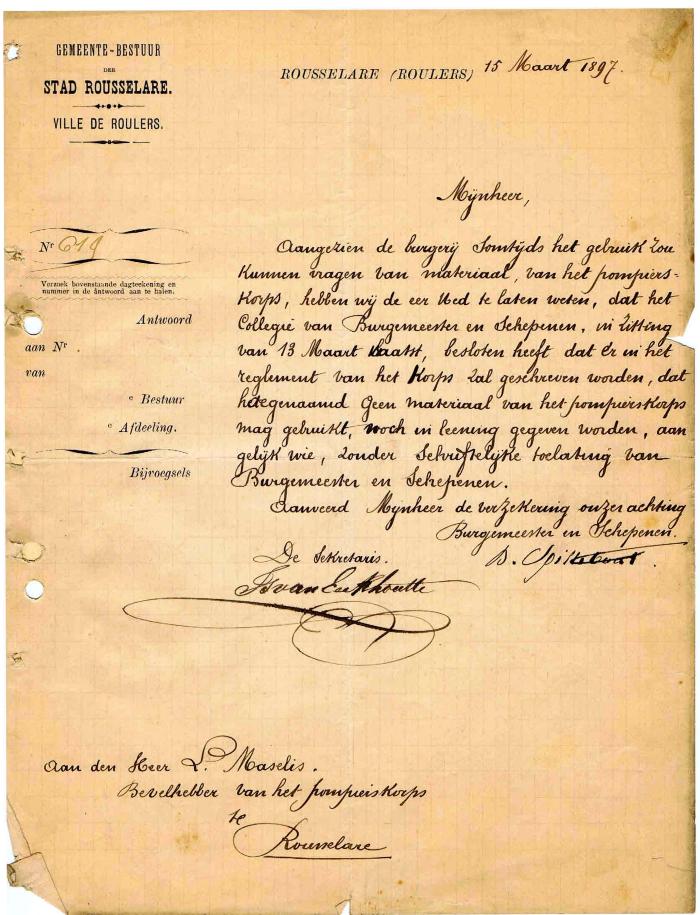 GEMEENTE-BESTUUR
DER
STAD ROUSSELARE.
VILLE DE ROULERS.
ROUSSELARE (ROULERS) 15 Maart 1897.
Mijnheer,
Nr 619
Verzoek bovenstaande dagteekening en
nummer in de antwoord aan te halen.
Antwoord
aan Nr
van
e Bestuur
e Afdeeling.
Bijvoegsels
Aangezien de burgerij Somtijds het gebruik Zou
Kunnen vragen van materiaal, van het pompiers-
Korps, hebben wij de eer Ued te laten weten, dat het
Collegie van Burgemeester en Schepenen, in Zitting
van 13 Maart laatst, besloten heeft dat er in het
reglement van het Korps Zal geschreven worden, dat
hoegenaamd Geen materiaal van het pompierskorps
mag gebruikt, noch in leening gegeven worden, aan
gelijk wie, Zonder Schriftelijke toelating van
Burgemeester en Schepenen.
Aanveerd Mijnheer de verzekering onzer achting
Burgemeester en Schepenen.
De Sekretaris.
van Eeckhoutte
Aan den Heer L. Maselis.
Bevelhebber van het pompierskorps
te
Rousselare